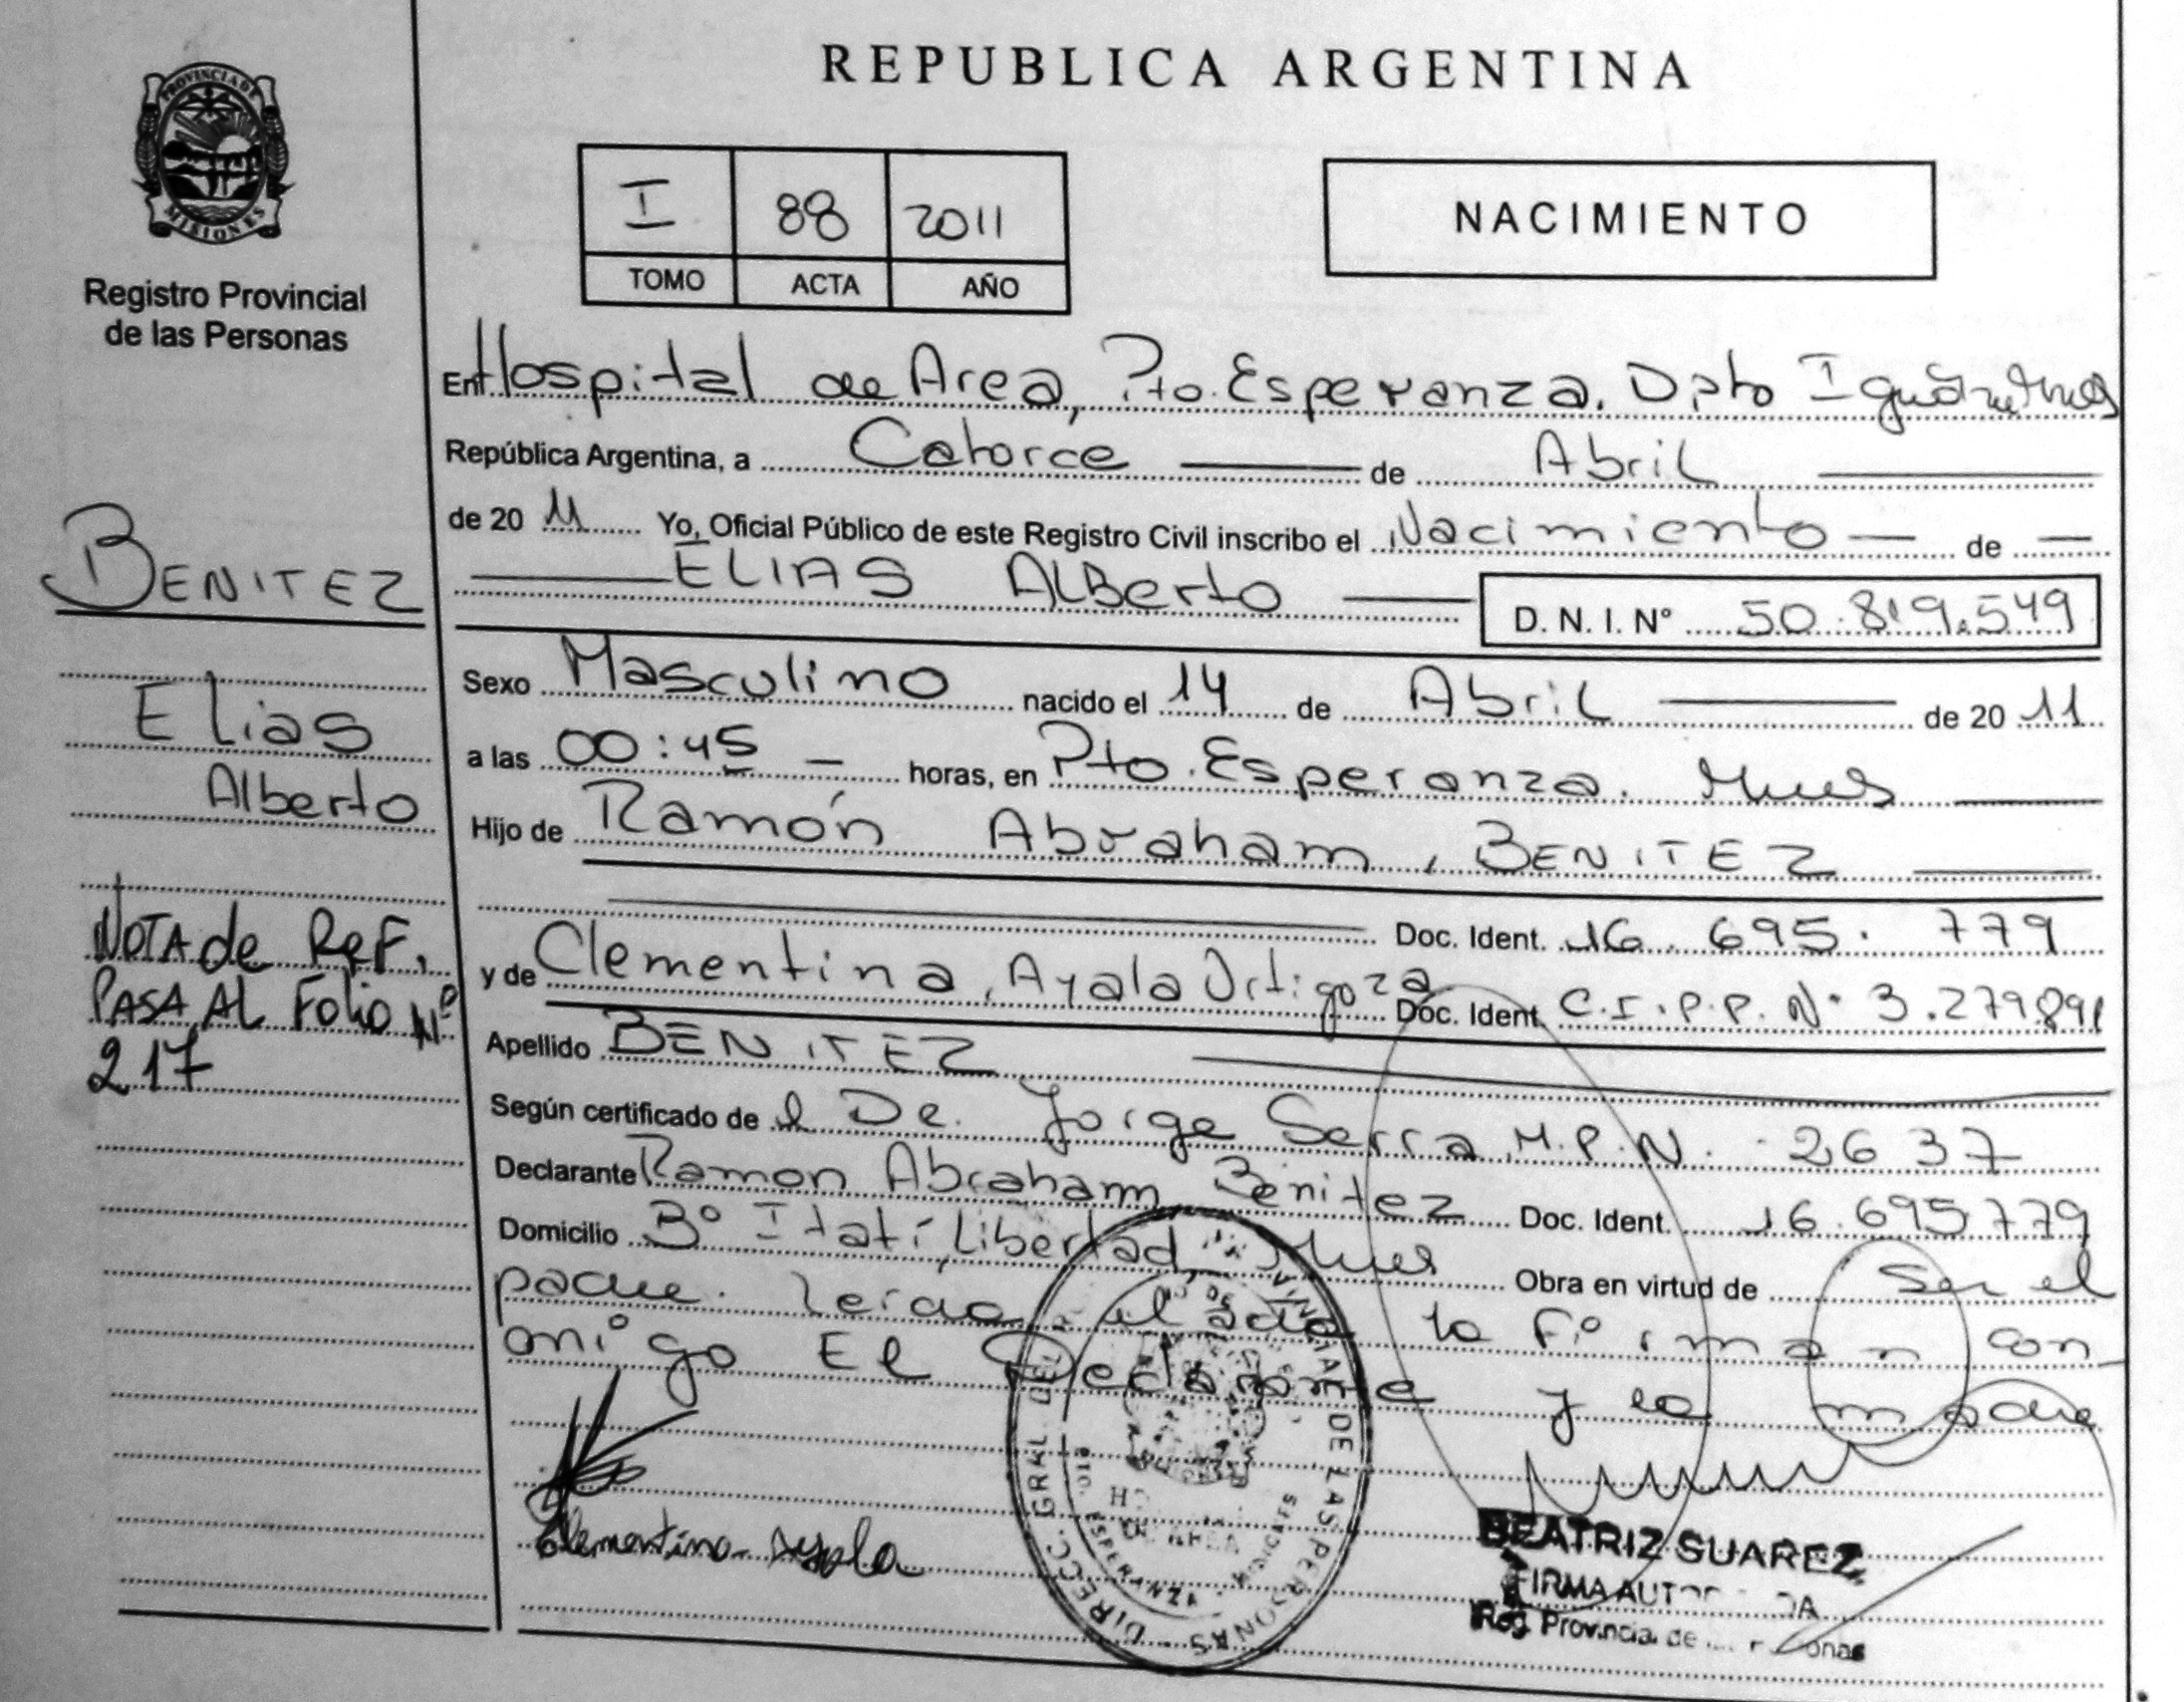 REPUBLICA ARGENTINA
PROVINCIA DE
MISIONES
Registro Provincial
de las Personas
I 88 2011
TOMO ACTA AÑO
NACIMIENTO
En Hospital de Area, Pto. Esperanza. Dpto Iguazú
República Argentina, a Catorce de Abril
de 20 11 Yo, Oficial Público de este Registro Civil inscribo el Nacimiento de
ELIAS ALBerto D. N. I. Nº 50.819.549
BENITEZ
Elias
Alberto
Sexo Masculino nacido el 14 de Abril de 20 11
a las 00:45 horas, en Pto. Esperanza. Mnes
Hijo de Ramón Abraham, BENITEZ
Doc. Ident. 16.695.779
y de Clementina, Ayala Ortigoza Doc. Ident. C.I.P.P. Nº 3.279891
NOTA de Ref.
PASA AL Folio Nº
217
Apellido BENITEZ
Según certificado de l De. Jorge Serra M.P.N. 2637
Declarante Ramon Abraham Benitez Doc. Ident. 16.695.779
Domicilio Bº Itatí, Libertad, Mnes Obra en virtud de Ser el
padre. Leida el acta la Firman con
migo El Declarante y la madre
Clementina Ayala
DIRECC. GRAL DEL DE LAS PERSONAS
PTO. ESPERANZA
BEATRIZ SUAREZ
FIRMA
Reg. Provincial de